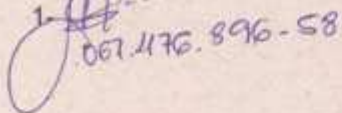 1.
067.476.896-58